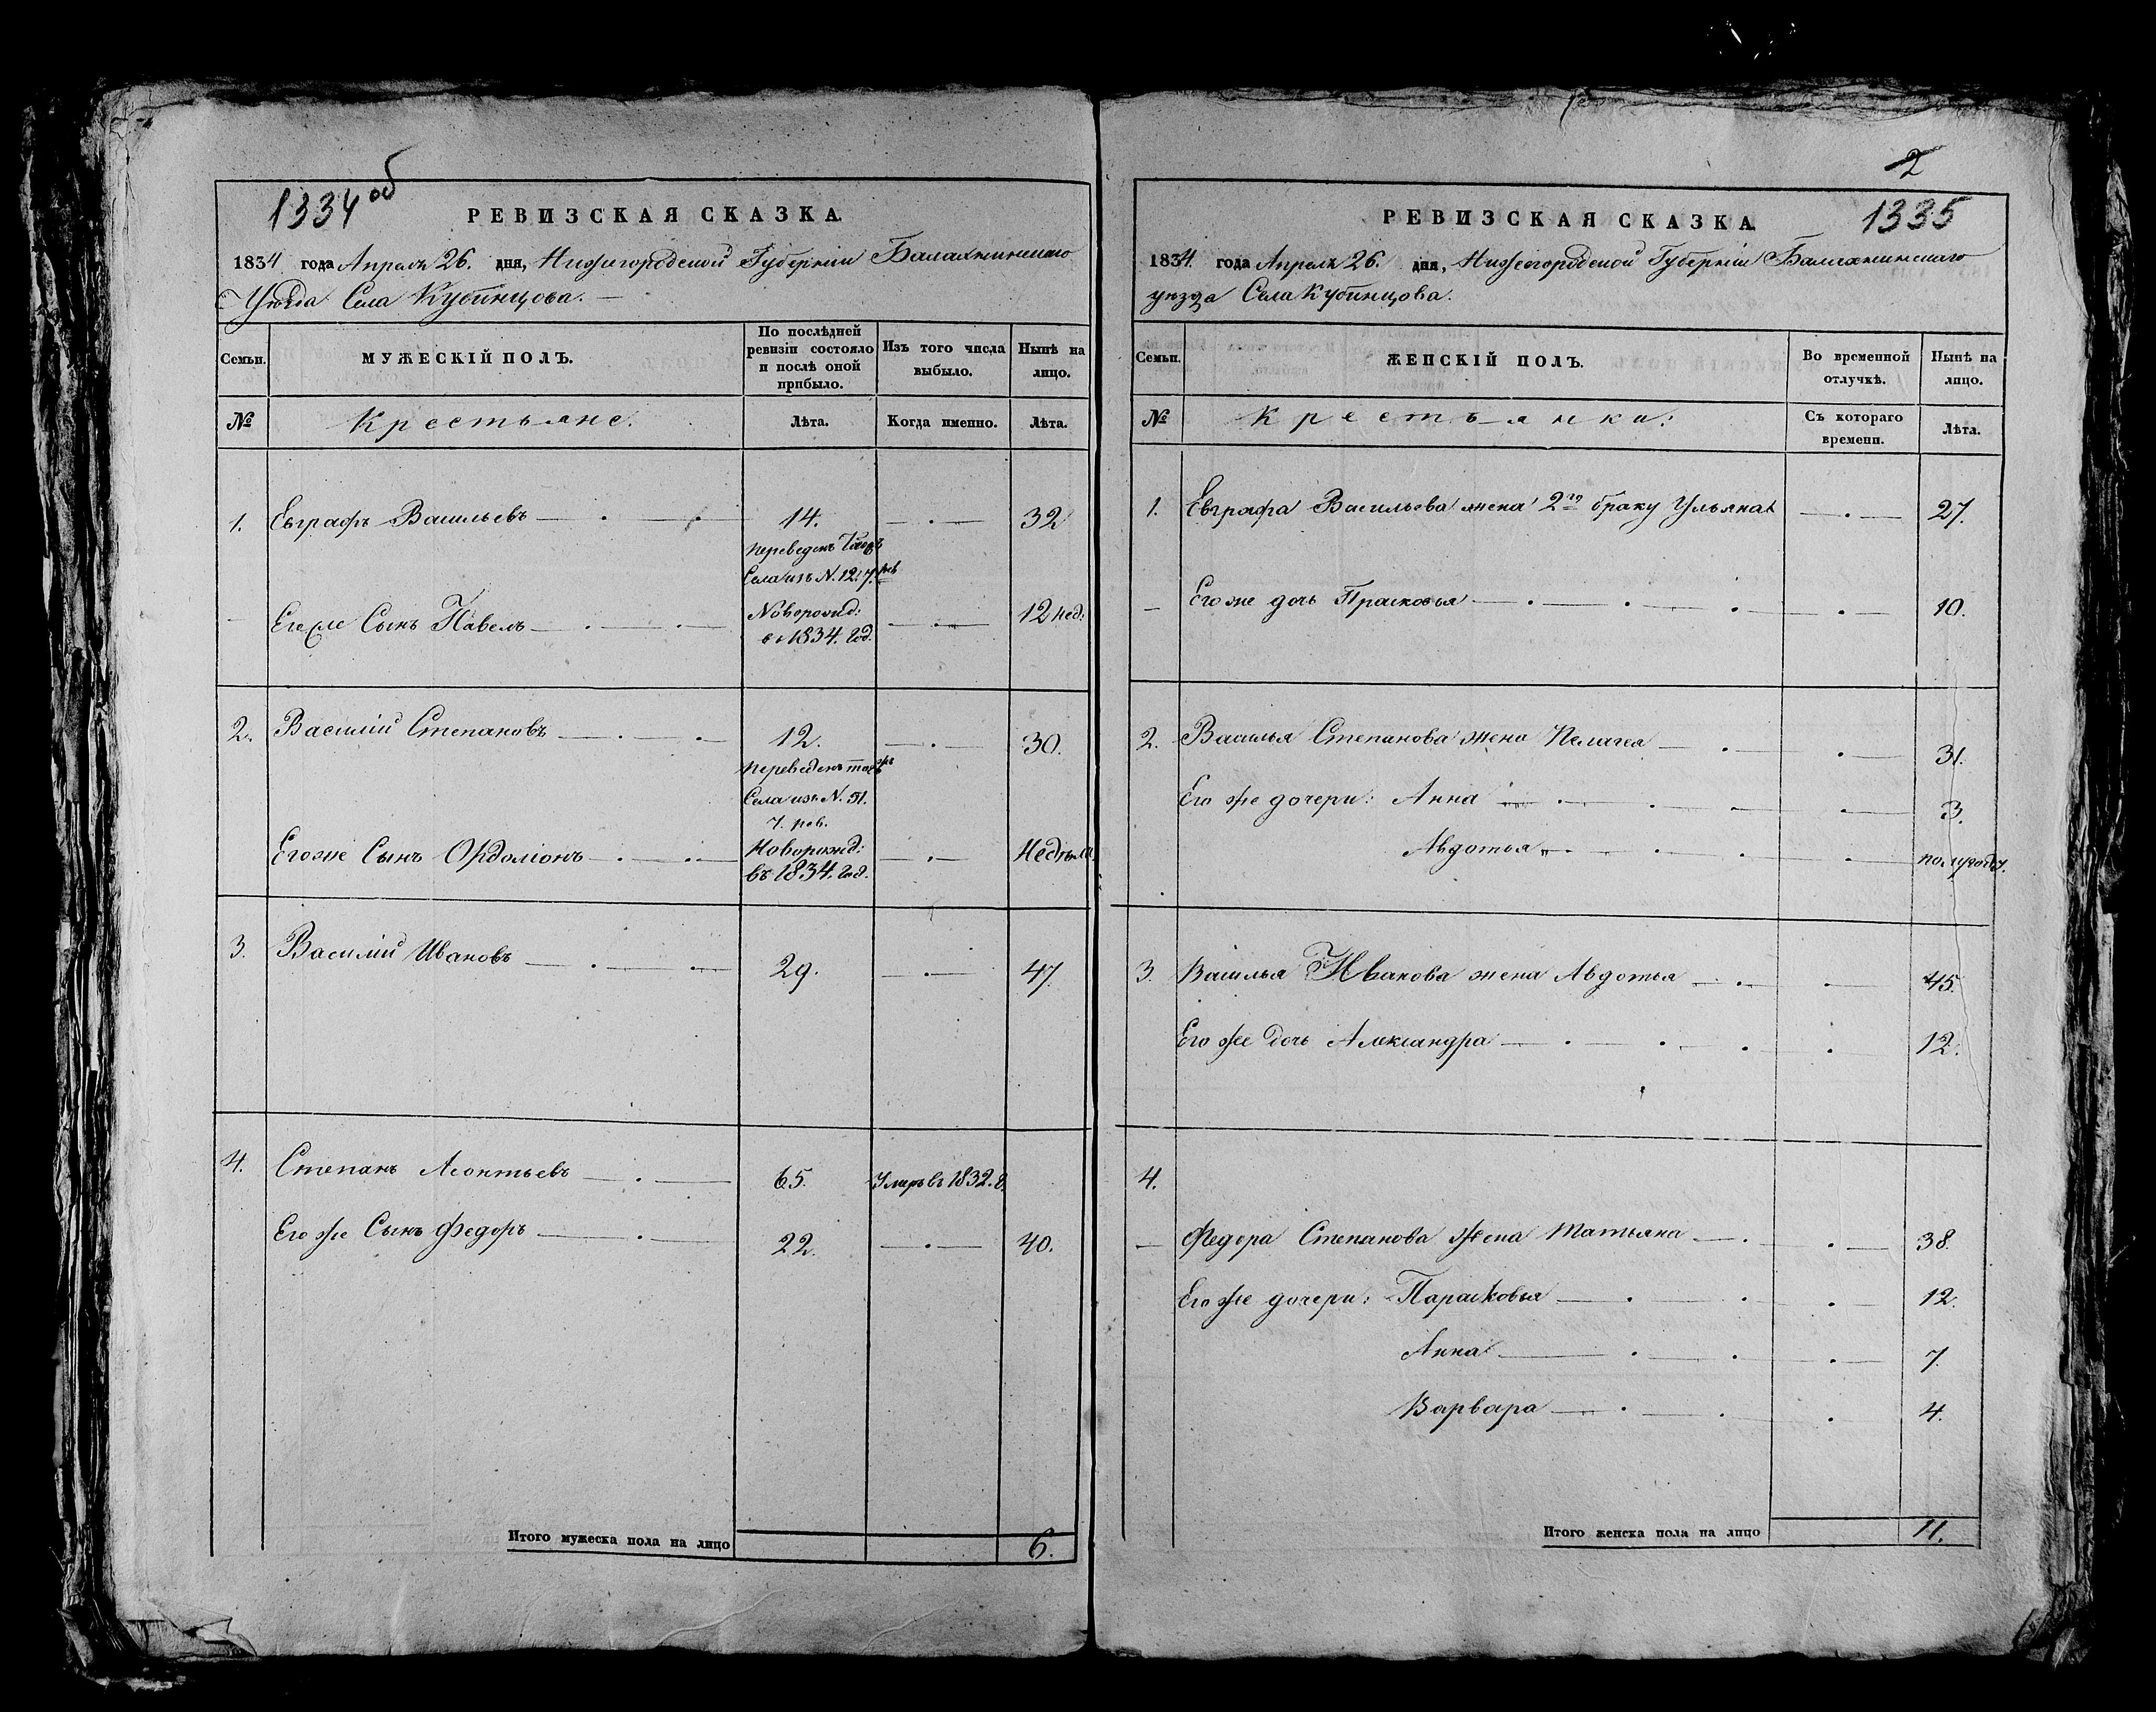 1334 об
РЕВИЗСКАЯ СКАЗКА.
1834 года Апреля 26. дня, Нижегородской Губерніи Балахнинскаго
Уѣзда Села Кубинцова.
Семьи.
МУЖЕСКІЙ ПОЛЪ.
По послѣдней
ревизіи состояло
и послѣ оной
прибыло.
Изъ того числа
выбыло.
Нынѣ на
лицо.
№
Крестьяне.
Лѣта.
Когда именно.
Лѣта.
1. Евграфъ Васильевъ 14. 32
переведенъ
Села изъ N. 12. 7. рев
Его же Сынъ Павелъ Новорожд: 12 нед:
в 1834. год.
2. Василій Степановъ 12. 30.
переведенъ
Села изъ N. 51.
7. рев.
Его же Сынъ Ордаліонъ Новорожд: Недѣли
въ 1834. год.
3. Василій Ивановъ 29. 47.
4. Степанъ Леонтьевъ 65. Умеръ в 1832. г.
Его же Сынъ Федоръ 22. 40.
Итого мужеска пола на лицо 6.
2
РЕВИЗСКАЯ СКАЗКА. 1335
1834. года Апреля 26. дня, Нижегородской Губерніи Балахнинскаго
уѣзда Села Кубинцова.
Семьи.
ЖЕНСКІЙ ПОЛЪ.
Во временной
отлучкѣ.
Нынѣ на
лицо.
№
Крестьянки:
Съ котораго
времени.
Лѣта.
1. Евграфа Васильева жена 2го браку Ульяна 27.
Его же дочь Прасковья 10.
2. Василья Степанова жена Пелагея 31.
Его же дочери: Анна 3.
Авдотья полугоду.
3. Василья Иванова жена Авдотья 45.
Его же дочь Александра 12.
4.
Федора Степанова жена Татьяна 38.
Его же дочери: Парасковья 12.
Анна 7.
Варвара 4.
Итого женска пола на лицо 11.